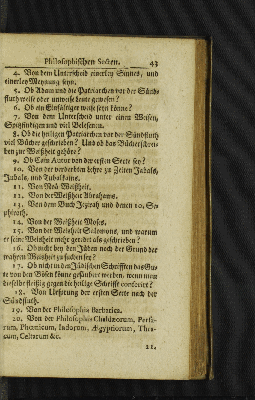 Philosophischen Secten. 43
4. Von dem Unterscheid einerley Sinnes, und
einerley Meynung seyn.
5. Ob Adam und die Patriarchen vor der Sünd-
fluth weise oder unweise Leute gewesen?
6. Ob ein Einfältiger weise seyn könne?
7. Von dem Unterscheid unter einem Weisen,
Spitzfindigen und viel Belesenen.
8. Ob die heiligen Patriarchen vor der Sündfluth
viel Bücher geschrieben? Und ob das Bücherschrei-
ben zur Weißheit gehöre?
9. Ob Cain Autor von der ersten Secte sey?
10. Von der verderbten Lehre zu Zeiten Jabals,
Jubals, und Tubalkains.
11. Von Noä Weißheit.
12. Von der Weißheit Abrahams.
13. Von dem Buch Jezirah und denen 10. Se-
phiroth.
14. Von der Weißheit Moses.
15. Von der Weisheit Salomons, und warum
er seine Weisheit mehr geredet als geschrieben?
16. Ob nicht bey den Jüden noch der Grund der
wahren Weisheit zu suchen sey?
17. Ob nicht in den Jüdischen Schrifften das Gu-
te von den Bösen könne gesäubert werden, wenn man
dieselbe fleißig gegen die heilige Schrifft conferirt?
18. Von Ursprung der ersten Secte nach der
Sündfluth.
19. Von der Philosophia Barbarica.
20. Von der Philosophia Chaldæorum, Persa-
rum, Phœnicum, Indorum, Ægyptiorum, Thra-
cum, Celtarum &c.
21.